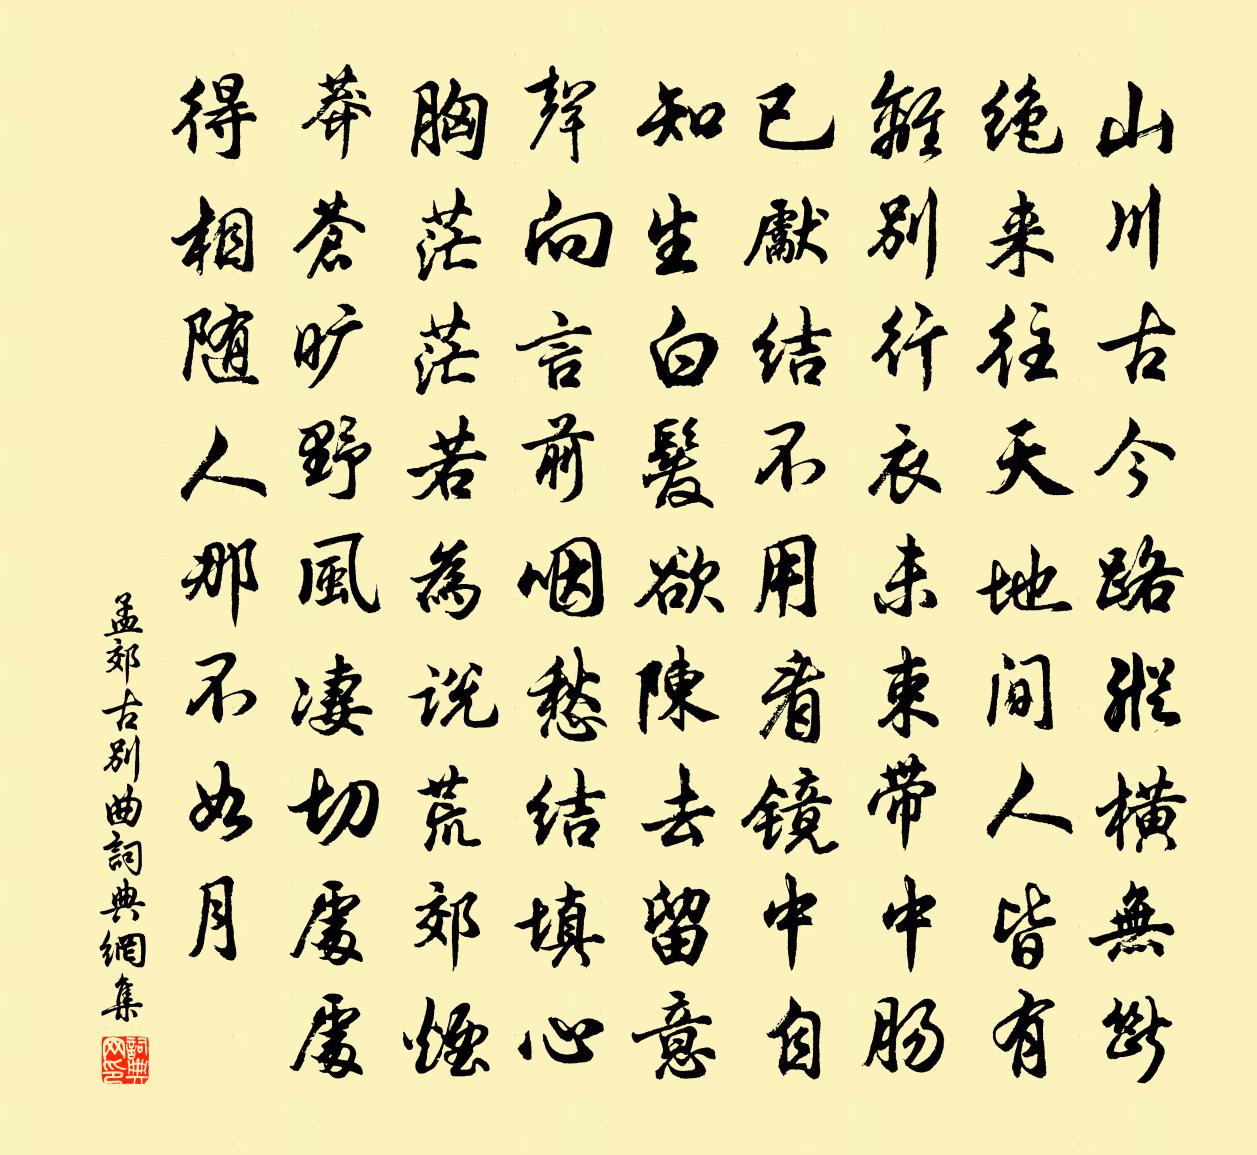 山川古今路縱橫無斷
絶来往天地間人皆有
離別行衣未束带中肠
已獻结不用看镜中自
知生白髮欲陳去留意
聲向言前咽愁结填心
胸茫茫若為説荒郊煙
莽蒼旷野風凄切處處
得相随人那不如月
孟郊古别曲詞典網集
詞典网印